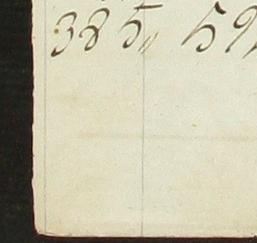 385〃 59